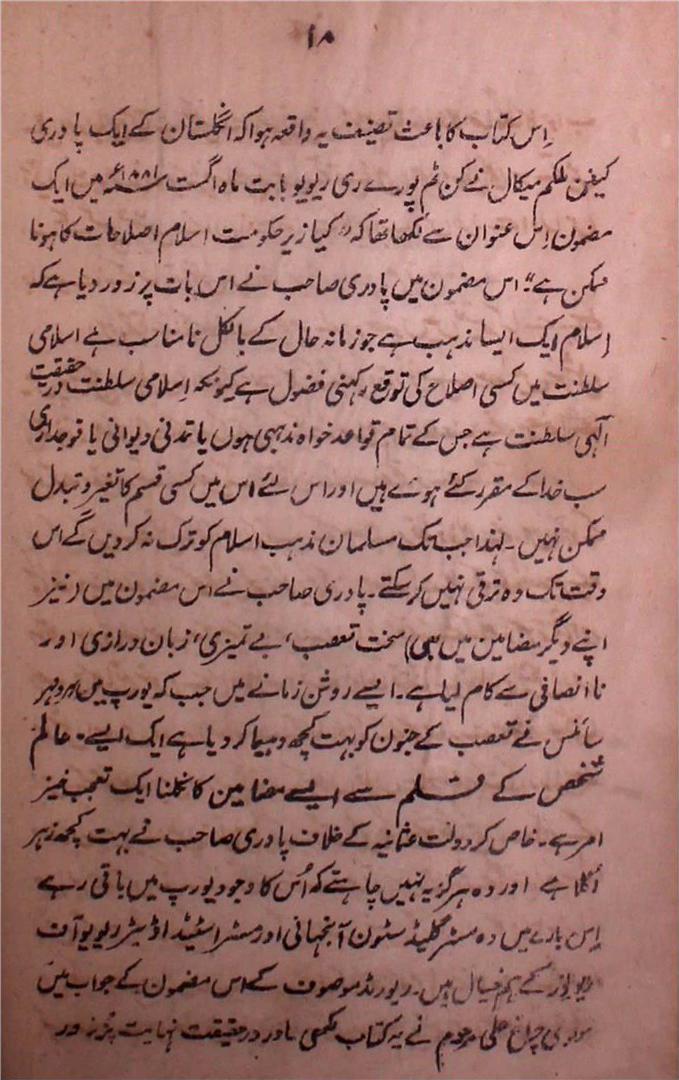 ۱۸
اِس کتاب کا باعث تصنیف یہ واقعہ ہوا کہ انگلستان کے ایک پادری
کینن ملکم میکال نے کن ٹم پورے ری ریویو بابت ماہ اگست ۱۸۸۱ء میں ایک
مضمون اِس عنوان سے لکھا تھا کہ "کیا زیر حکومت اسلام اصلاحات کا ہونا
ممکن ہے" اس مضمون میں پادری صاحب نے اس بات پر زور دیا ہے کہ
اِسلام ایک ایسا مذہب ہے جو زمانہ حال کے بالکل نامناسب ہے اسلامی
سلطنت میں کسی اصلاح کی توقع رکھنی فضول ہے کیونکہ اِسلامی سلطنت در حقیقت
الٰہی سلطنت ہے جس کے تمام قواعد خواہ مذہبی ہوں یا تمدنی دیوانی یا فوجداری
سب خدا کے مقرر کئے ہوئے ہیں اور اس لئے اس میں کسی قسم کا تغیر و تبدل
ممکن نہیں۔ لہذا جب تک مسلمان مذہب اسلام کو ترک نہ کر دیں گے اس
وقت تک وہ ترقی نہیں کر سکتے۔ پادری صاحب نے اس مضمون میں (نیز
اپنے دیگر مضامین میں بھی) سخت تعصب، بے تمیزی، زبان درازی اور
نا انصافی سے کام لیا ہے۔ ایسے روشن زمانے میں جب کہ یورپ میں ہر و ہر
سائنس نے تعصب کے جنون کو بہت کچھ دھیما کر دیا ہے ایک ایسے عالم
شخص کے قلم سے ایسے مضامین کا نکلنا ایک تعجب خیز
امر ہے۔ خاص کر دولت عثمانیہ کے خلاف پادری صاحب نے بہت کچھ زہر
اُگلا ہے اور وہ ہرگز یہ نہیں چاہتے کہ اُس کا وجود یورپ میں باقی رہے
اِس بارے میں وہ مسٹر گلیڈسٹون آنجہانی اور مسٹر اسٹیڈ اڈیٹر ریویو آف
ریویوز کے ہم خیال ہیں۔ ریورنڈ موصوف کے اس مضمون کے جواب میں
مولوی چراغ علی مرحوم نے یہ کتاب لکھی اور در حقیقت نہایت پُر زور